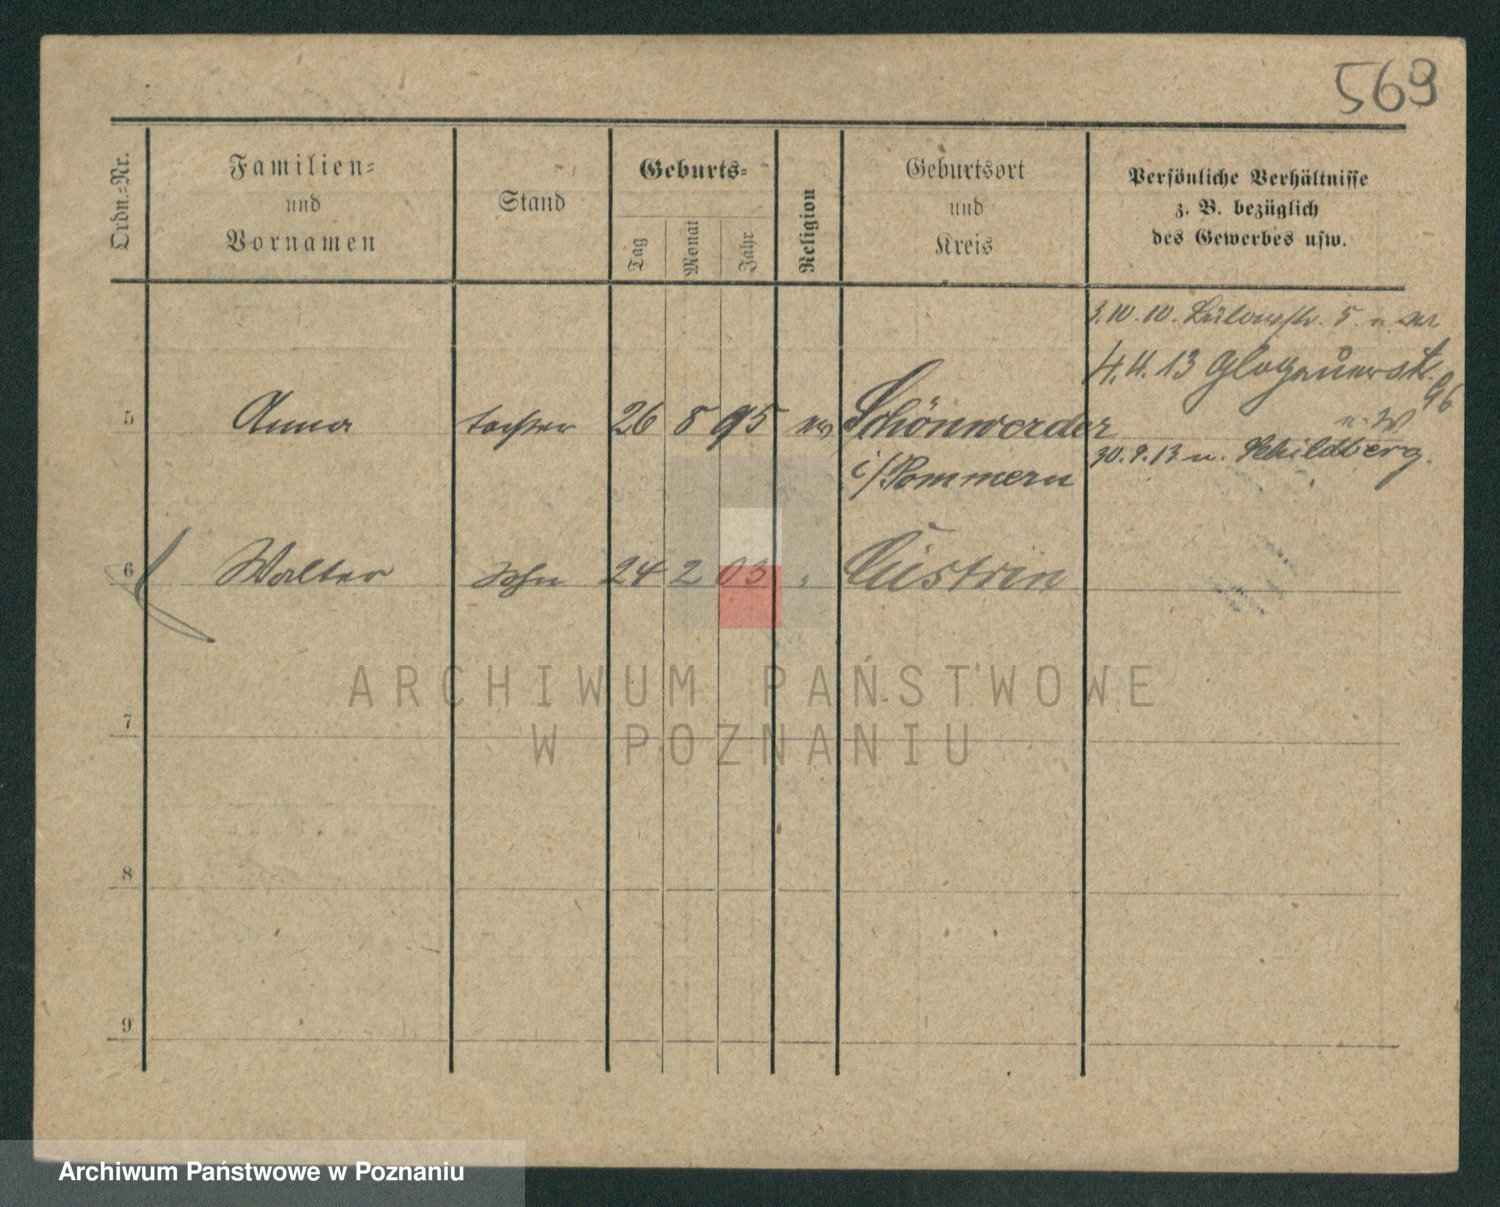 569
Ordn.=Nr.
Familien=
und
Vornamen
Stand
Geburts=
Tag
Monat
Jahr
Religion
Geburtsort
und
Kreis
Persönliche Verhältnisse
z. B. bezüglich
des Gewerbes usw.
3.10.10. 5
4.4.13 Glogauerstr. 96
5 Anna tochter 26 8 95 Schönwerder
i/Pommern
30.9.13 n. Schildberg.
6 Walter Sohn 24 2 03 " Cüstrin
7
8
9
ARCHIWUM PAŃSTWOWE
W POZNANIU
Archiwum Państwowe w Poznaniu